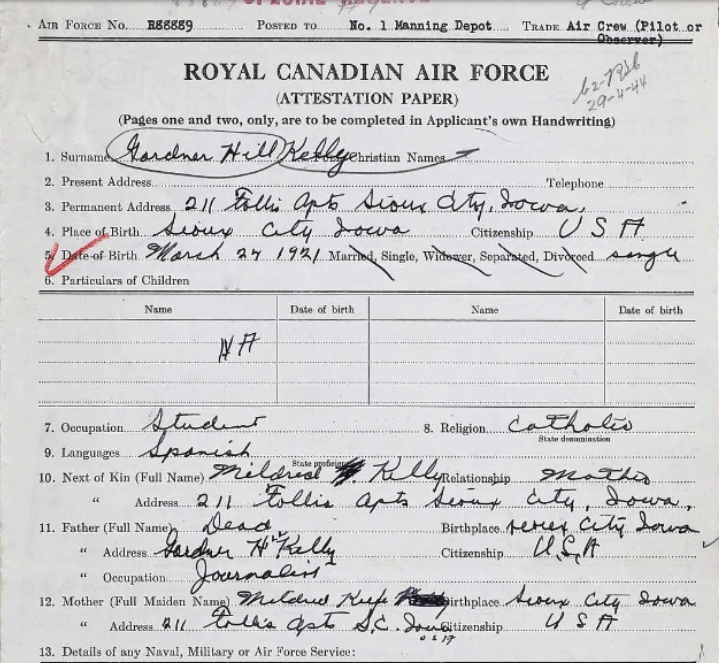 AIR FORCE NO. R88889 POSTED TO No. 1 Manning Depot TRADE Air Crew (Pilot or
Observer)
ROYAL CANADIAN AIR FORCE
(ATTESTATION PAPER)
29-4-44
(Pages one and two, only, are to be completed in Applicant's own Handwriting)
1. Surname Gardner Hill Kelly Christian Names
2. Present Address Telephone
3. Permanent Address 211 Follis Apts Sioux City, Iowa,
4. Place of Birth Sioux City Iowa Citizenship U S A
5. Date of Birth March 27 1921 Married, Single, Widower, Separated, Divorced single
6. Particulars of Children
Name Date of birth Name Date of birth
NA
7. Occupation Student 8. Religion Catholic
State denomination
9. Languages Spanish
State proficiency
10. Next of Kin (Full Name) Mildred Kelly Relationship Mother
" Address 211 Follis Apts Sioux City, Iowa,
11. Father (Full Name) Dead Birthplace Sioux City Iowa
" Address Gardner H Kelly Citizenship U.S.A
" Occupation Journalist
12. Mother (Full Maiden Name) Mildred Birthplace Sioux City Iowa
" Address 211 Follis Apts S.C. Iowa Citizenship U S A
U S A
13. Details of any Naval, Military or Air Force Service: